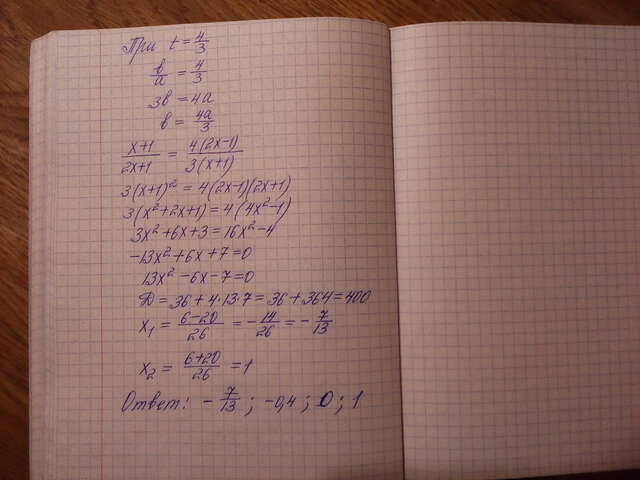 При t = 4/3
в/а = 4/3
3в = 4а
в = 4а/3
x+1/2x+1 = 4(2x-1)/3(x+1)
3(x+1)² = 4(2x-1)(2x+1)
3(x²+2x+1) = 4(4x²-1)
3x²+6x+3 = 16x²-4
-13x²+6x+7=0
13x²-6x-7=0
D = 36+4·13·7 = 36+364 = 400
x₁ = 6-20/26 = -14/26 = -7/13
x₂ = 6+20/26 = 1
Ответ: -7/13; -0,4; 0; 1